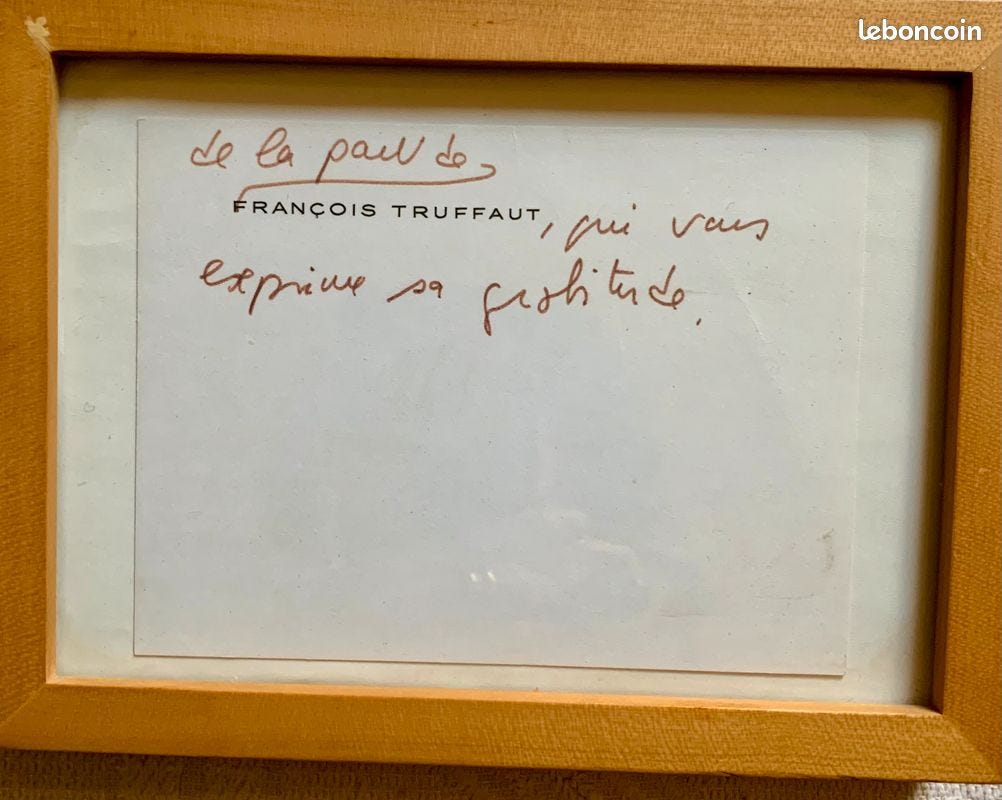 leboncoin
de la part de
FRANÇOIS TRUFFAUT, qui vous
exprime sa gratitude.